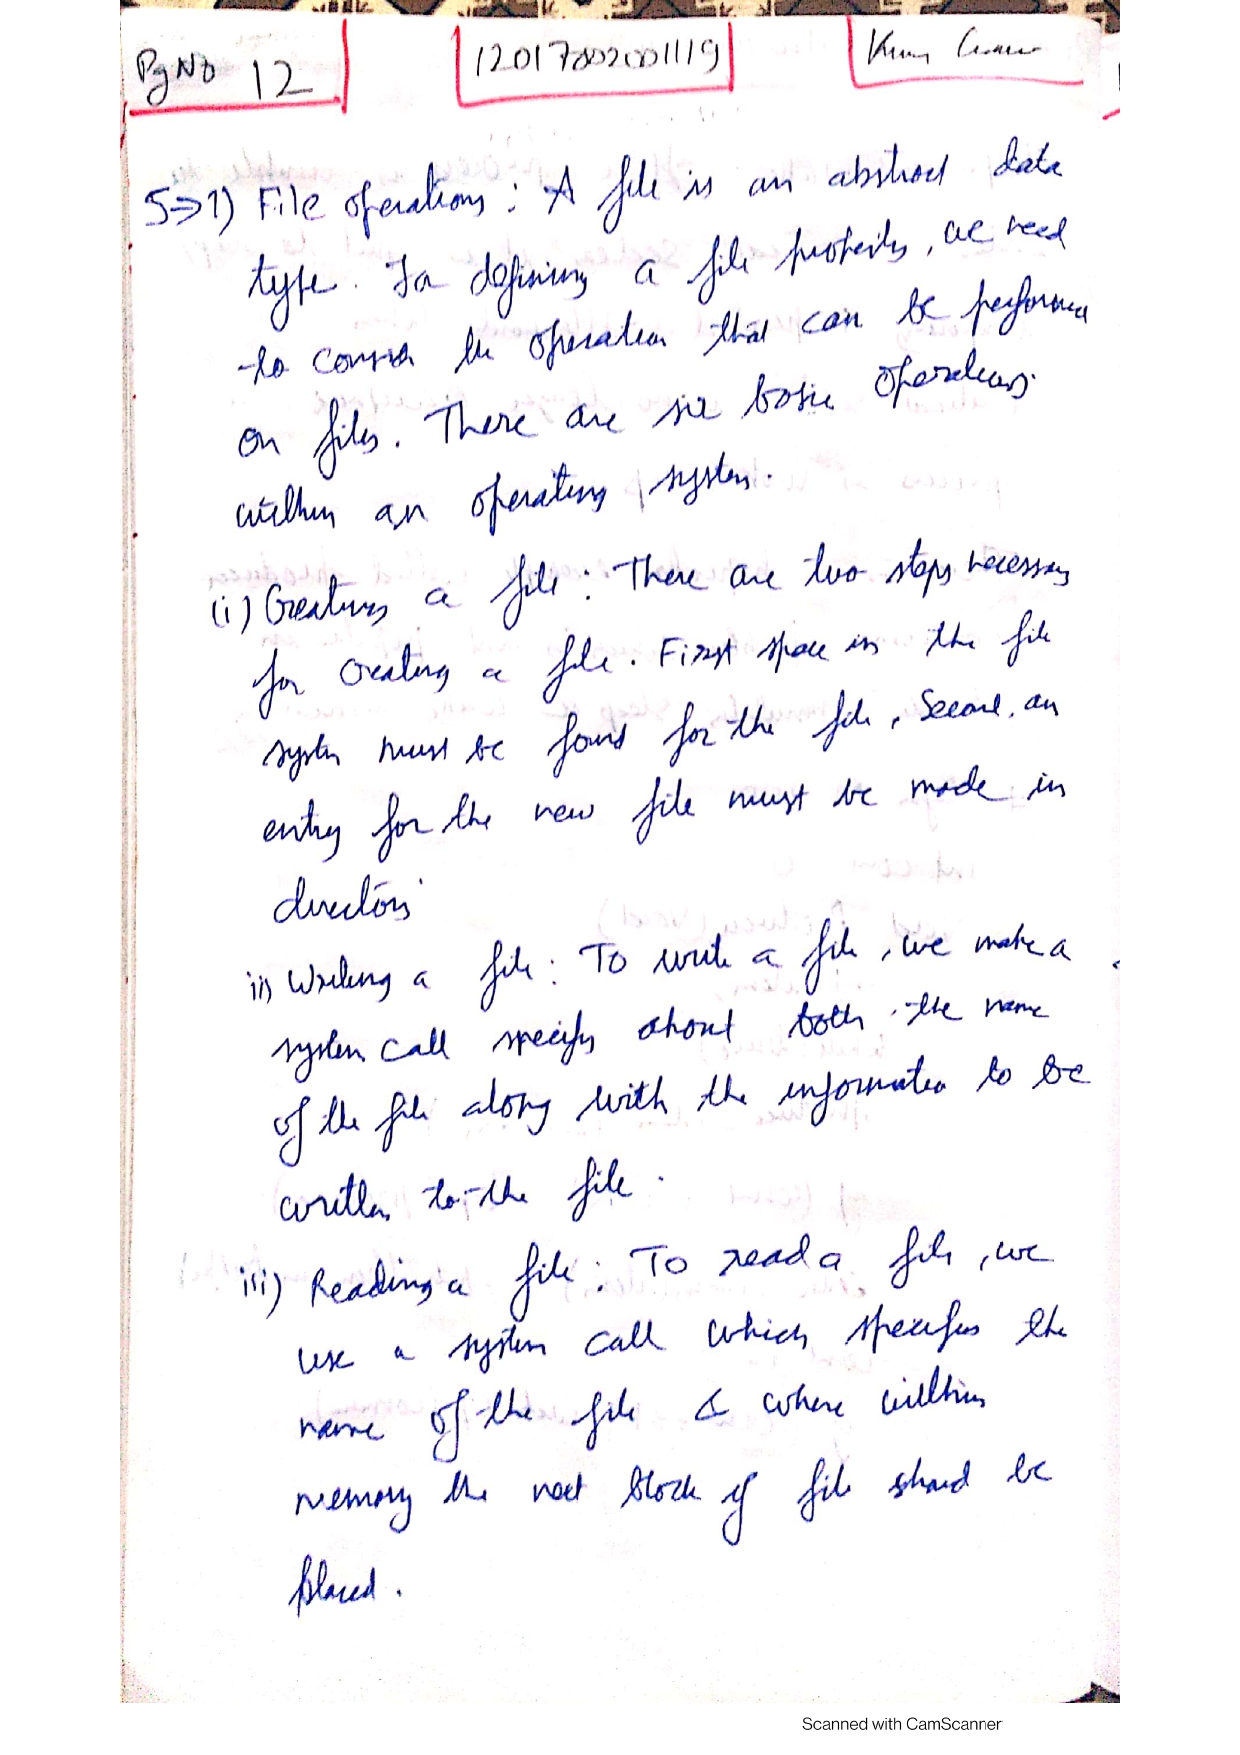 Pg No 12
12017002001119
5⇒1) File operations : A file is an abstract data
type. For defining a file properly, we need
to consider the operation that can be performed
on files. There are six basic operations
within an operating system.
(i) Creating a file : There are two steps necessary
for creating a file. First space in the file
system must be found for the file, Second, an
entry for the new file must be made in
directory
ii) Writing a file : To write a file, we make a
system call specify about both the name
of the file along with the information to be
written to the file.
iii) Reading a file : To read a file, we
use a system call which specifies the
name of the file & where within
memory the next block of file should be
placed.
Scanned with CamScanner